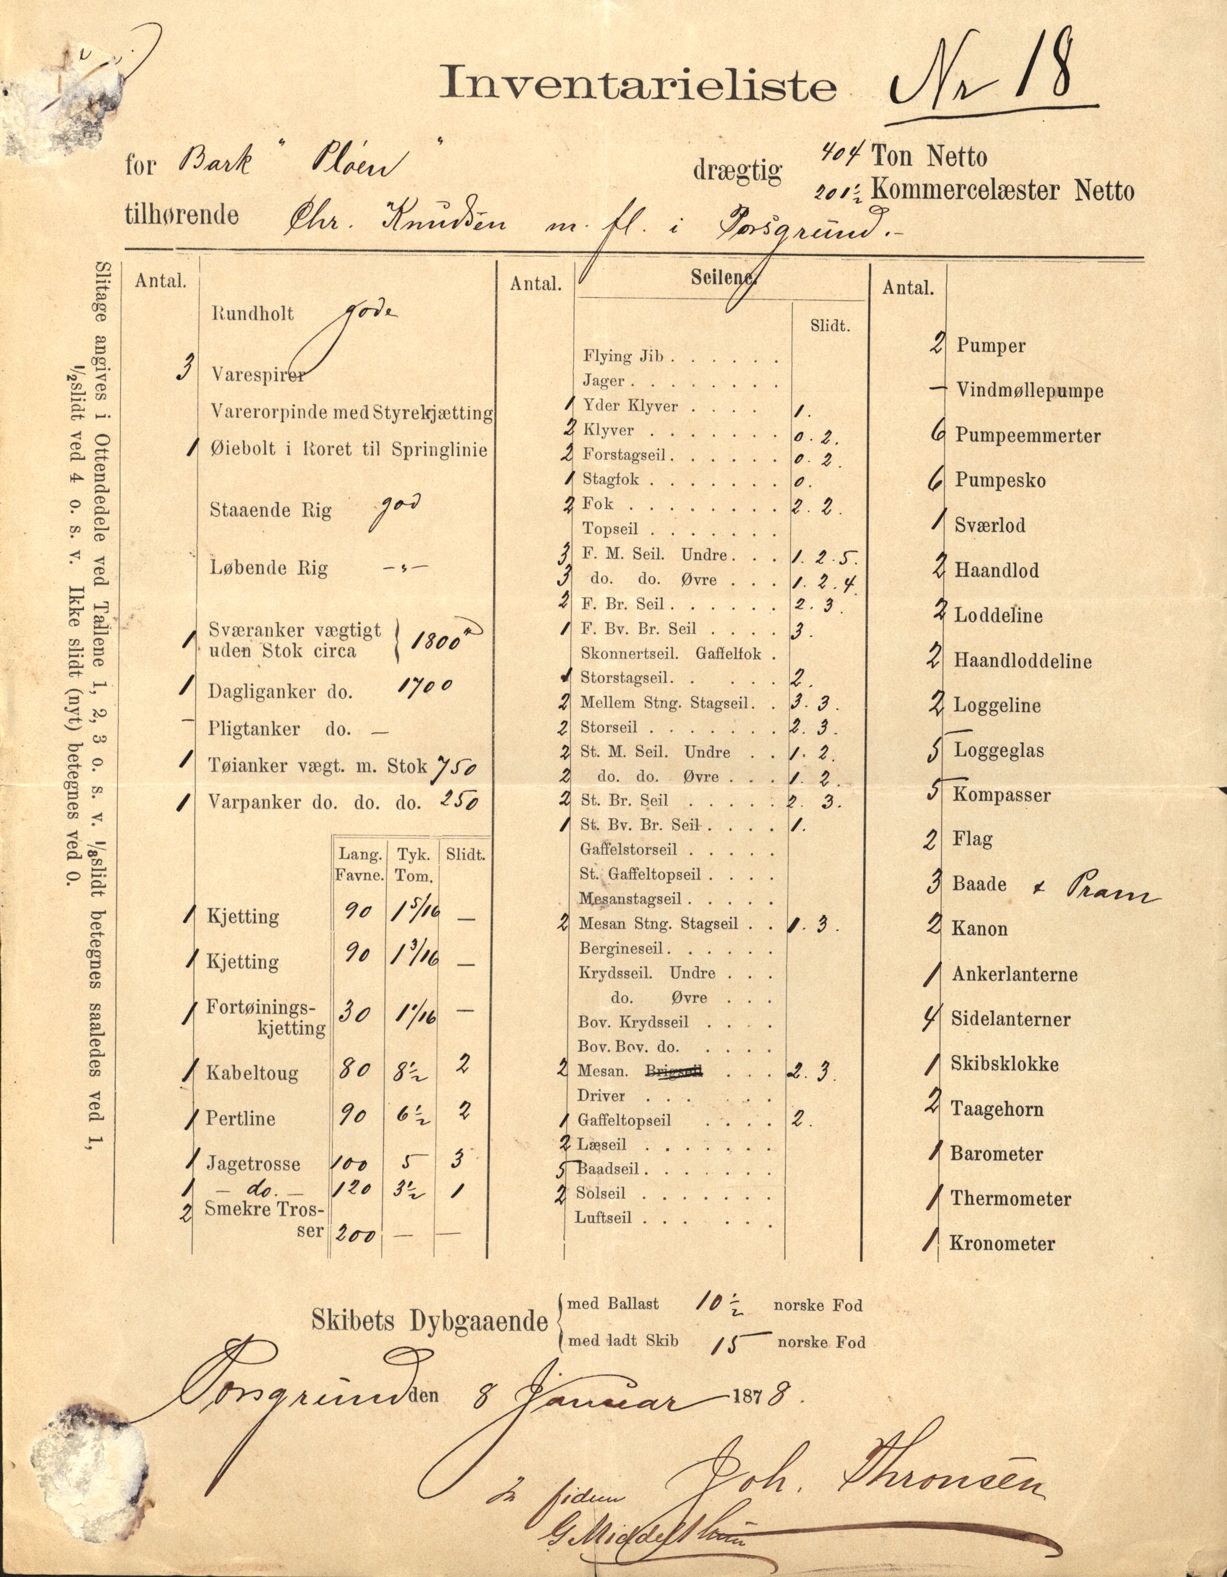 Inventarieliste Nr 18
for Bark "Pløen" drægtig 404 Ton Netto
201½ Kommercelæster Netto
tilhørende Chr. Knudsen m. fl. i Porsgrund.-
Slitage angives i Ottendedele ved Tallene 1, 2, 3 o. s. v. 1/8 slidt betegnes saaledes ved 1,
1/2 slidt ved 4 o. s. v. Ikke slidt (nyt) betegnes ved 0.
Antal.
Rundholt gode
3 Varespirer
Varerorpinde med Styrekjætting
1 Øiebolt i Roret til Springlinie
Staaende Rig god
Løbende Rig -"-
1 Sværanker vægtigt uden Stok circa { 1800
1 Dagliganker do. 1700
- Pligtanker do. -
1 Tøianker vægt. m. Stok 750
1 Varpanker do. do. do. 250
Lang. Favne. Tyk. Tom. Slidt.
1 Kjetting 90 1 5/16 -
1 Kjetting 90 1 3/16 -
1 Fortøinings-kjetting 30 1 1/16 -
1 Kabeltoug 80 8½ 2
1 Pertline 90 6½ 2
1 Jagetrosse 100 5 3
1 - do. - 120 3½ 1
2 Smekre Trosser 200 - -
Antal. Seilene.
Slidt.
Flying Jib . . . . . .
Jager . . . . . . .
1 Yder Klyver . . . . 1.
2 Klyver . . . . . . . 0. 2.
2 Forstagseil . . . . . . 0. 2.
1 Stagfok . . . . . . . 0.
2 Fok . . . . . . . . 2. 2.
Topseil . . . . . . .
3 F. M. Seil. Undre . . . 1. 2. 5.
3 do. do. Øvre . . . 1. 2. 4.
2 F. Br. Seil . . . . . . 2. 3.
1 F. Bv. Br. Seil . . . . 3.
Skonnertseil. Gaffelfok .
1 Storstagseil . . . . . 2.
2 Mellem Stng. Stagseil . . 3. 3.
2 Storseil . . . . . . . 2. 3.
2 St. M. Seil. Undre . . 1. 2.
2 do. do. Øvre . . . 1. 2.
2 St. Br. Seil . . . . . 2. 3.
1 St. Bv. Br. Seil . . . . 1.
Gaffelstorseil . . . . .
St. Gaffeltopseil . . . .
Mesanstagseil . . . . .
2 Mesan Stng. Stagseil . . 1. 3.
Bergineseil . . . . . .
Krydsseil. Undre . . .
do. Øvre . . .
Bov. Krydsseil . . . .
Bov. Bov. do. . . . .
2 Mesan. Brigseil . . . 2. 3.
Driver . . . . . .
1 Gaffeltopseil . . . . 2.
2 Læseil . . . . . .
5 Baadseil . . . . . . .
2 Solseil . . . . . . .
Luftseil . . . . . .
Antal.
2 Pumper
- Vindmøllepumpe
6 Pumpeemmerter
6 Pumpesko
1 Sværlod
2 Haandlod
2 Loddeline
2 Haandloddeline
2 Loggeline
5 Loggeglas
5 Kompasser
2 Flag
3 Baade & Pram
2 Kanon
1 Ankerlanterne
4 Sidelanterner
1 Skibsklokke
2 Taagehorn
1 Barometer
1 Thermometer
1 Kronometer
Skibets Dybgaaende { med Ballast 10½ norske Fod
med ladt Skib 15 norske Fod
Porsgrund den 8 Januar 1878.
Joh. Thronsen
In fidem
G Middelthun